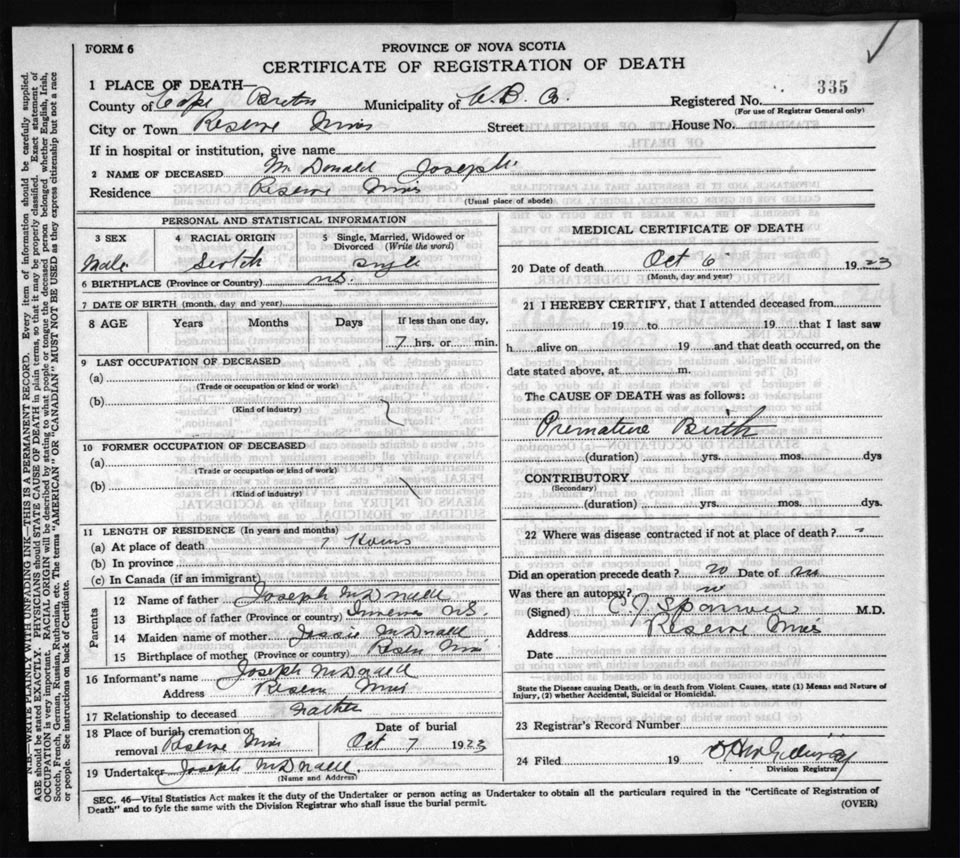 FORM 6
PROVINCE OF NOVA SCOTIA
CERTIFICATE OF REGISTRATION OF DEATH
335
1 PLACE OF DEATH—
County of Cape Breton Municipality of C. B. Co. Registered No.
(For use of Registrar General only)
City or Town Reserve Mines Street House No.
If in hospital or institution, give name
2 NAME OF DECEASED McDonald Joseph
Residence Reserve Mines
(Usual place of abode)
PERSONAL AND STATISTICAL INFORMATION
3 SEX 4 RACIAL ORIGIN 5 Single, Married, Widowed or Divorced (Write the word)
Male Scotch Single
6 BIRTHPLACE (Province or Country) N.S.
7 DATE OF BIRTH (month, day and year)
8 AGE Years Months Days If less than one day,
7 hrs. or min.
9 LAST OCCUPATION OF DECEASED
(a)
(Trade or occupation or kind of work)
(b)
(Kind of industry)
10 FORMER OCCUPATION OF DECEASED
(a)
(Trade or occupation or kind of work)
(b)
(Kind of industry)
11 LENGTH OF RESIDENCE (In years and months)
(a) At place of death 7 Hours
(b) In province
(c) In Canada (if an immigrant)
Parents
12 Name of father Joseph McDonald
13 Birthplace of father (Province or country) N.S.
14 Maiden name of mother Jessie McDonald
15 Birthplace of mother (Province or country) Reserve Mines
16 Informant's name Joseph McDonald
Address Reserve Mines
17 Relationship to deceased Father
18 Place of burial, cremation or removal Reserve Mines Date of burial Oct 7 1923
19 Undertaker Joseph McDonald
(Name and Address)
MEDICAL CERTIFICATE OF DEATH
20 Date of death Oct 6 1923
(Month, day and year)
21 I HEREBY CERTIFY, that I attended deceased from
19 to 19 that I last saw
h alive on 19 and that death occurred, on the
date stated above, at m.
The CAUSE OF DEATH was as follows:
Premature Birth
(duration) yrs. mos. dys
CONTRIBUTORY
(Secondary)
(duration) yrs. mos. dys.
22 Where was disease contracted if not at place of death?
Did an operation precede death? no Date of no
Was there an autopsy? no
(Signed) M.D.
Address Reserve Mines
Date
State the Disease causing Death, or in death from Violent Causes, state (1) Means and Nature of Injury, (2) whether Accidental, Suicidal or Homicidal.
23 Registrar's Record Number
24 Filed 19
Division Registrar
SEC. 46—Vital Statistics Act makes it the duty of the Undertaker or person acting as Undertaker to obtain all the particulars required in the "Certificate of Registration of
Death" and to fyle the same with the Division Registrar who shall issue the burial permit.
(OVER)
N.B.—WRITE PLAINLY WITH UNFADING INK—THIS IS A PERMANENT RECORD. Every item of information should be carefully supplied.
AGE should be stated EXACTLY. PHYSICIANS should STATE CAUSE OF DEATH in plain terms, so that it may be properly classified. Exact statement of
OCCUPATION is very important. RACIAL ORIGIN will be described by stating to what people or tongue the deceased person belonged whether English, Irish,
Scotch, French, German, Russian, Ruthenian, etc. The terms "AMERICAN" OR "CANADIAN" MUST NOT BE USED as they express citizenship but not a race
or people. See instructions on back of Certificate.